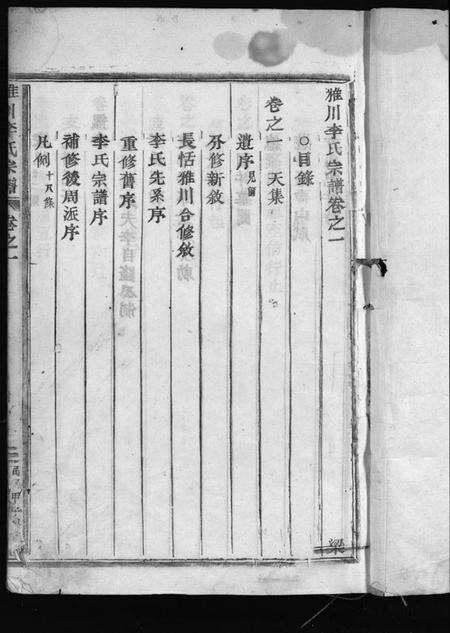 雅川李氏宗譜卷之一
○目錄
卷之一 天集
遺序 見前
弁修新敘
長恬雅川合修敘
李氏先系序
重修舊序
李氏宗譜序
補修後周派序
凡例 十八條
雅川李氏宗譜 卷之一
梁